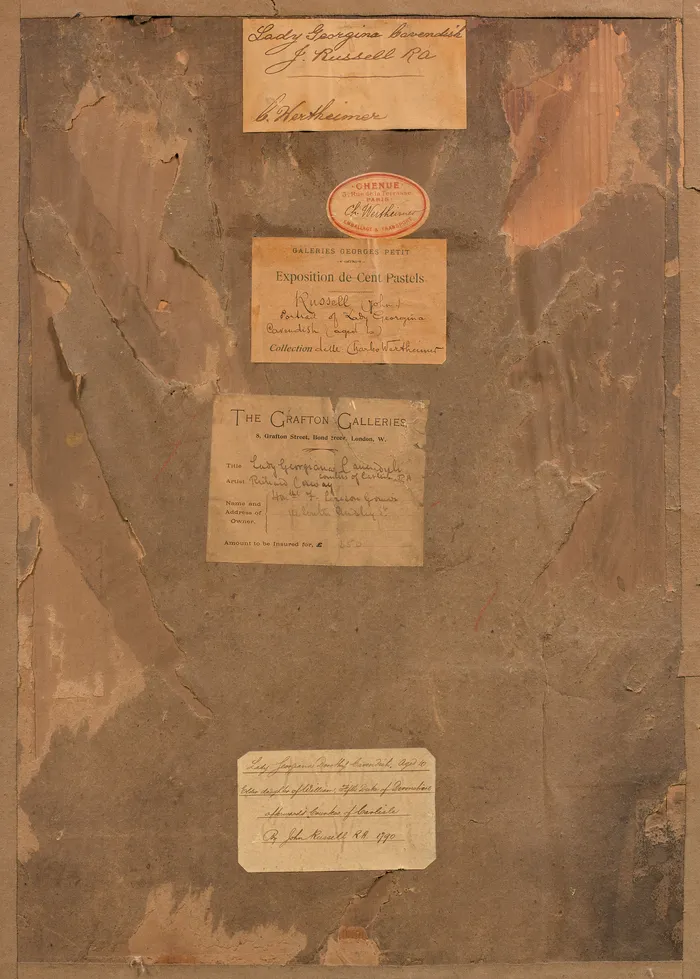 Lady Georgina Cavendish
J. Russell RA
C. Wertheimer
CHENUE
5, Rue de la Terrasse
PARIS
Ch. Wertheimer
EMBALLAGE & TRANSPORT
GALERIES GEORGES PETIT
Exposition de Cent Pastels.
Russell (John)
Portrait of Lady Georgina
Cavendish (aged 10)
Collection de Mr Charles Wertheimer
THE GRAFTON GALLERIES
8, Grafton Street, Bond Street, London, W.
Title Lady Georgiana Cavendish
Countess of Carlisle
Artist Richard Cosway RA
Name and
Address of
Owner.
Amount to be Insured for, £
Lady Georgiana Dorothy Cavendish. Aged 10
Eldes daughter of William Fifth Duke of Devonshire
afterwards Countess of Carlisle
By John Russell RA 1790